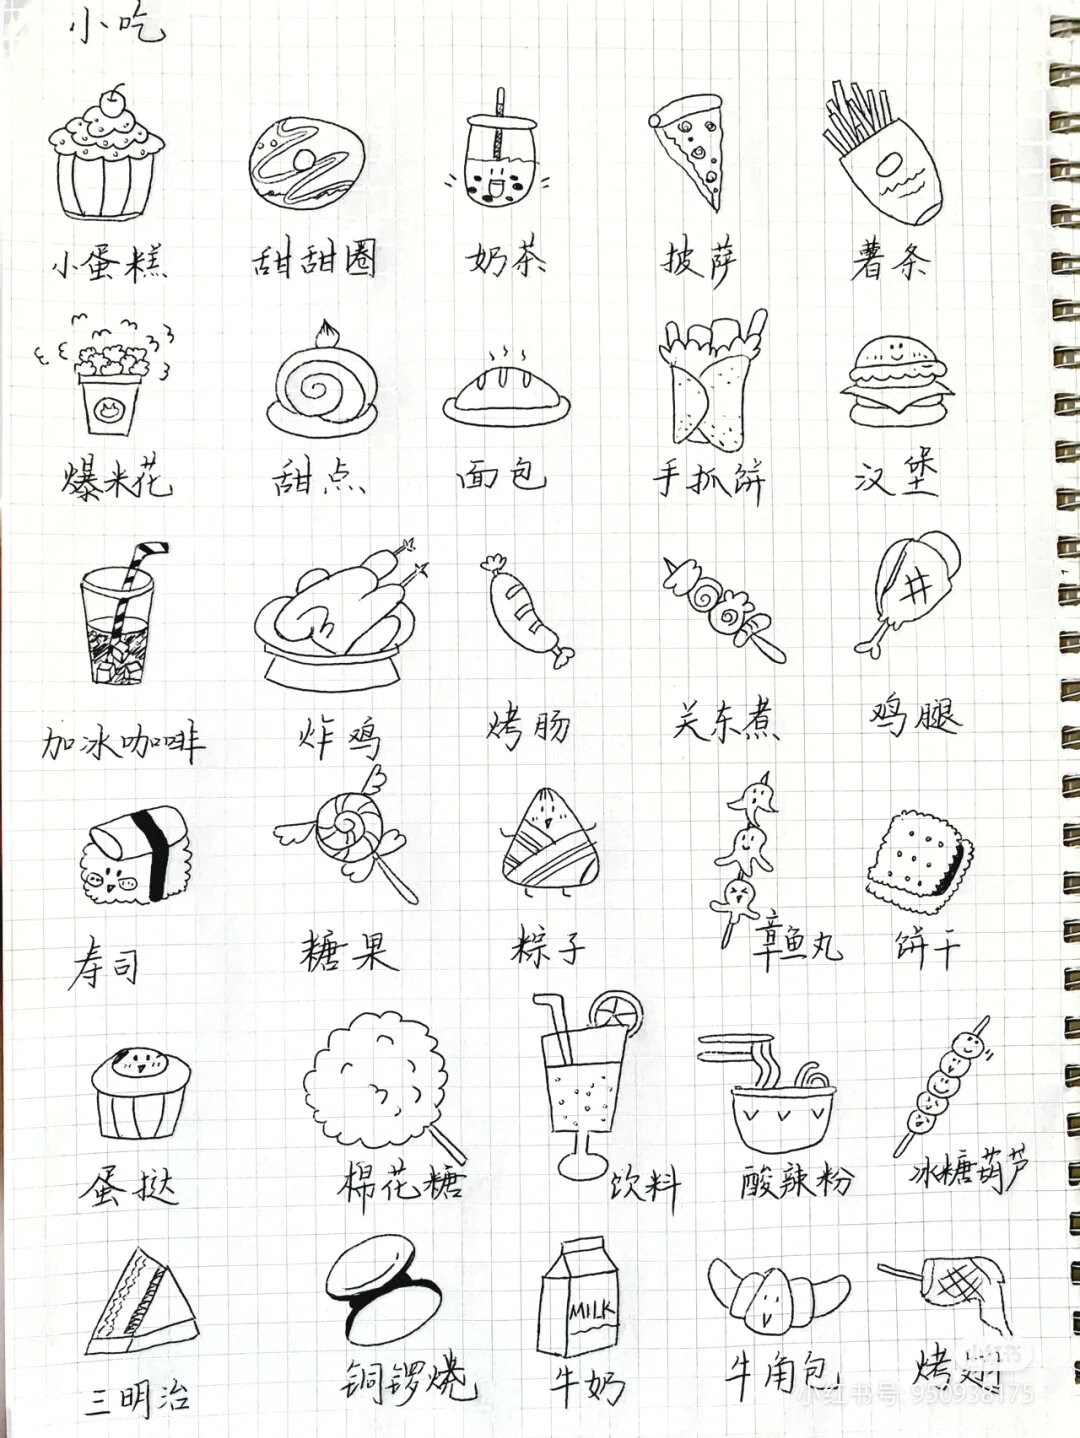 小吃
小蛋糕 甜甜圈 奶茶 披萨 薯条
爆米花 甜点 面包 手抓饼 汉堡
加冰咖啡 炸鸡 烤肠 关东煮 鸡腿
寿司 糖果 粽子 章鱼丸 饼干
蛋挞 棉花糖 饮料 酸辣粉 冰糖葫芦
MILK
三明治 铜锣烧 牛奶 牛角包 烤
小红书
小红书号: 950938175